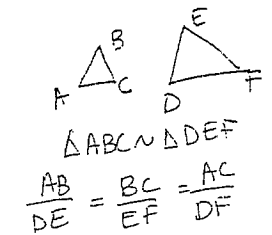 B
A
C
E
D
F
△ABC ~ △DEF
AB/DE = BC/EF = AC/DF